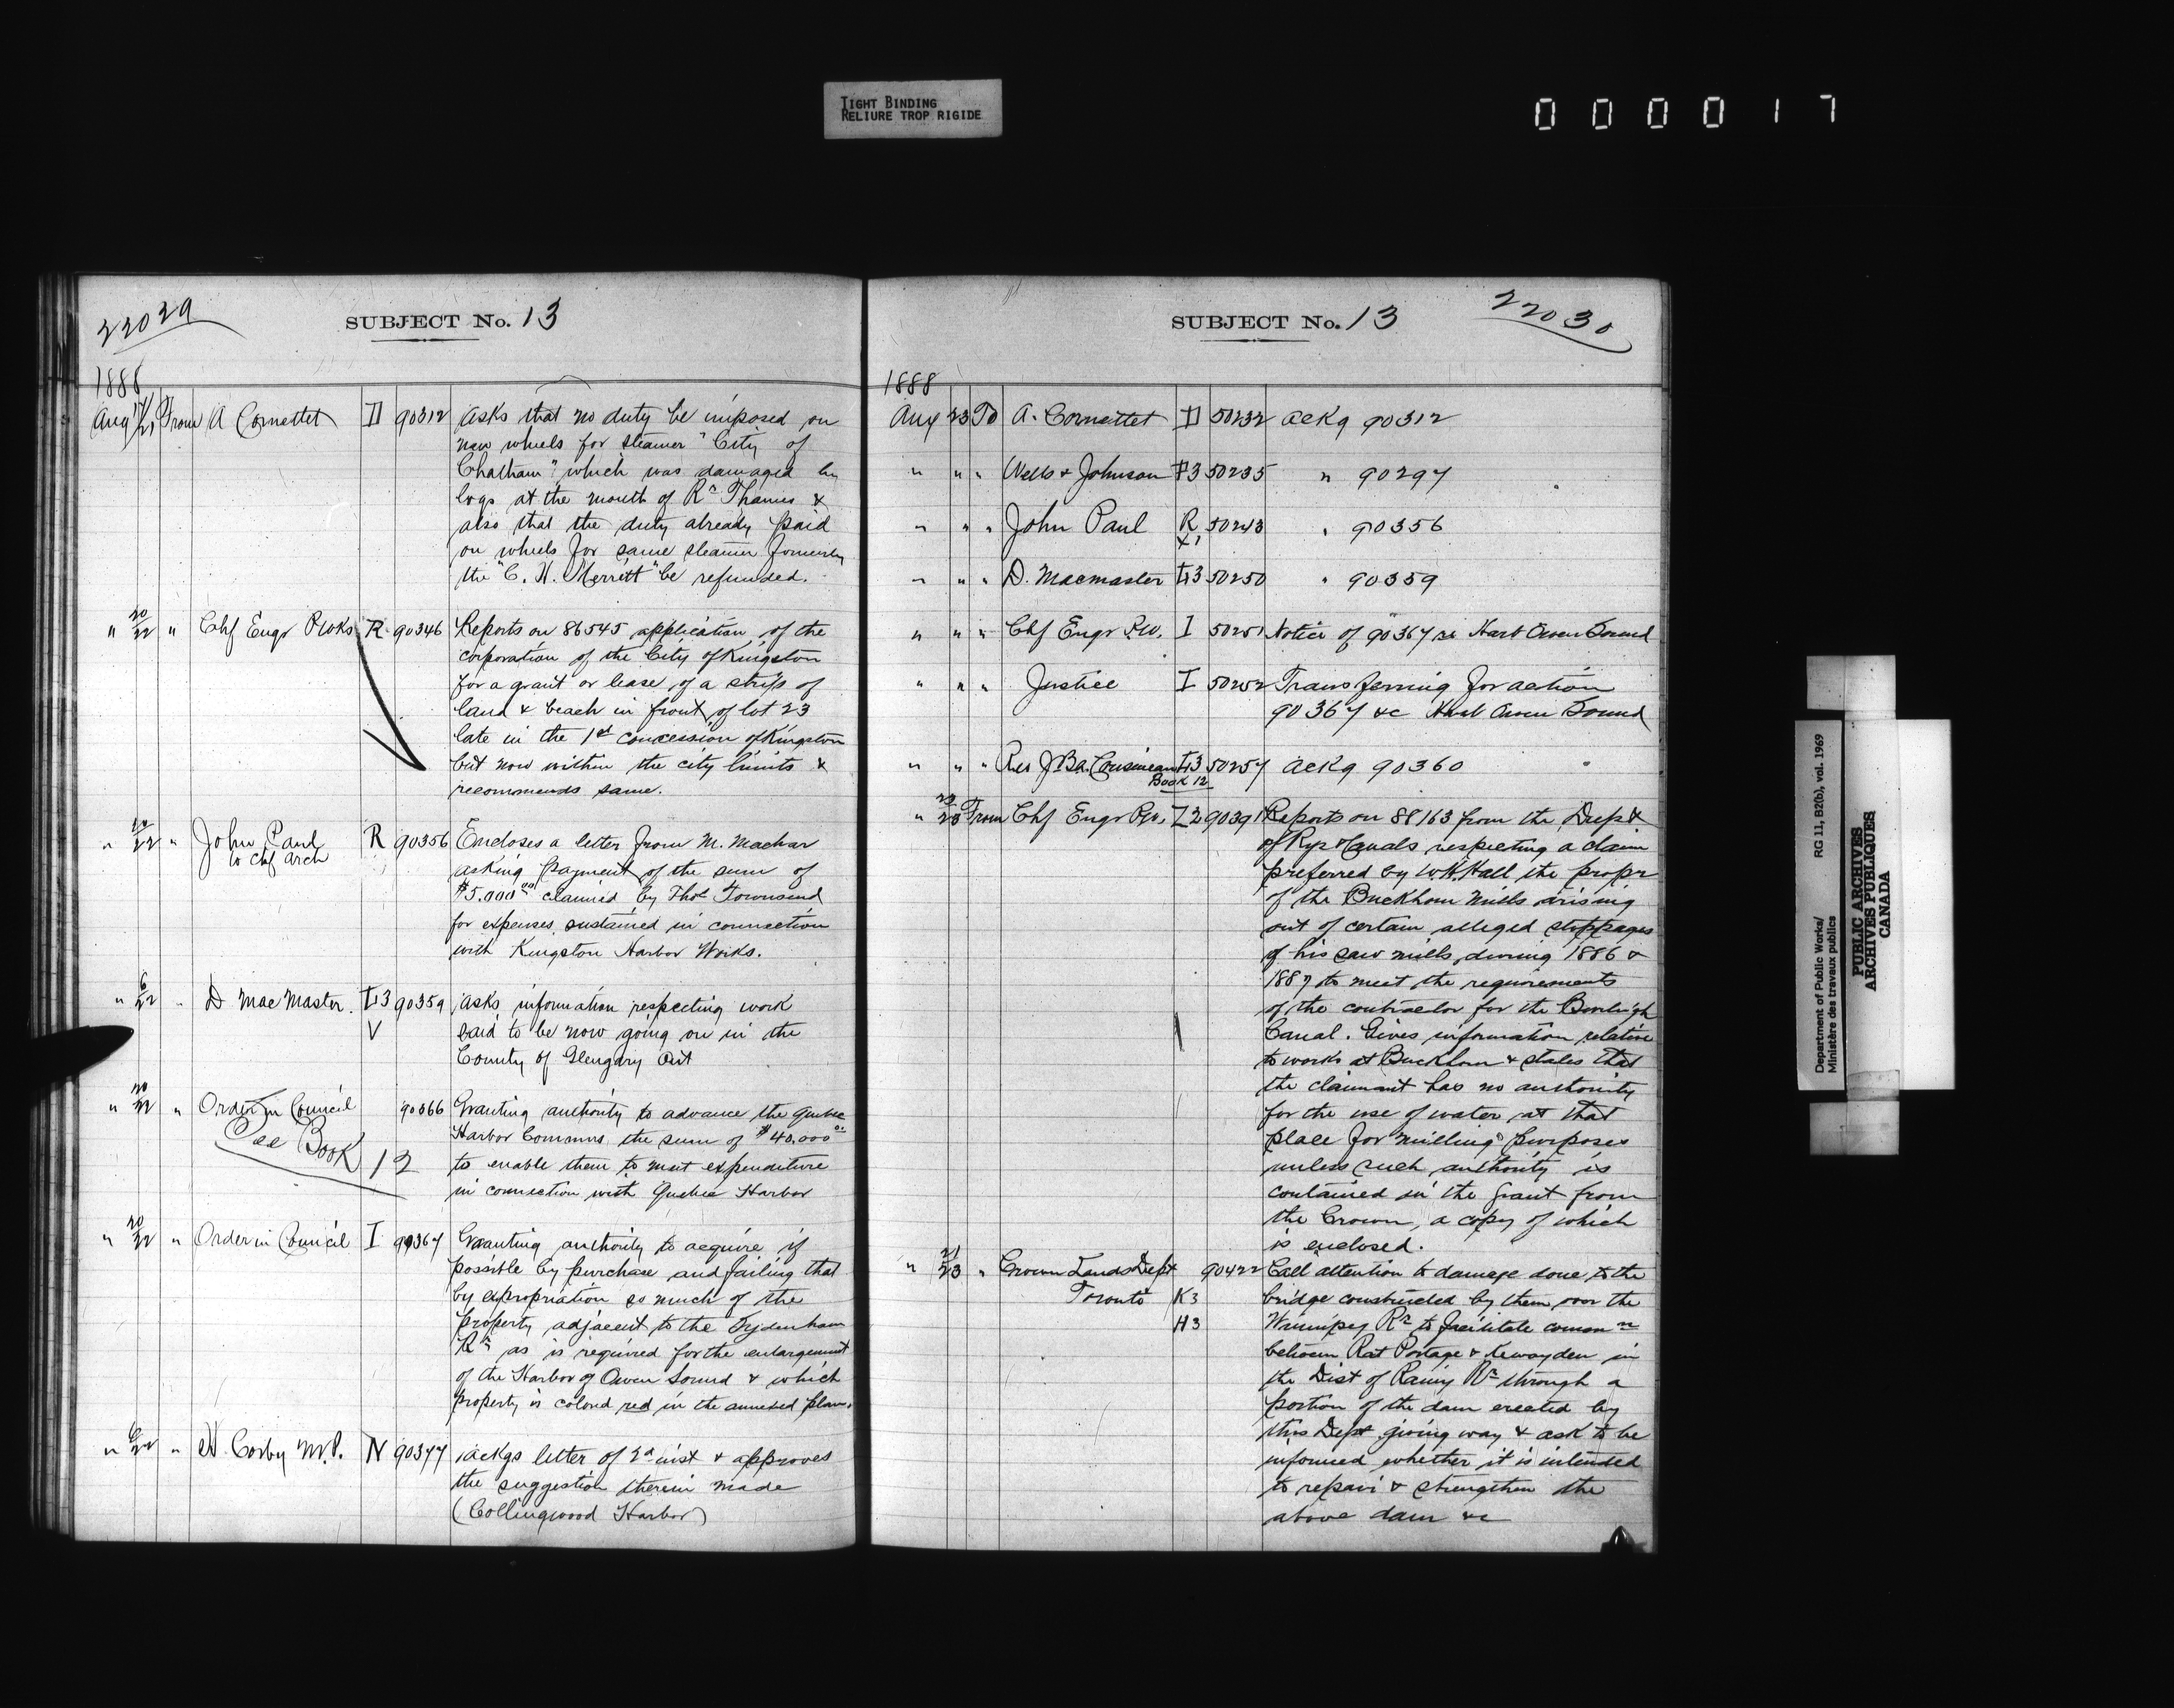 TIGHT BINDING
RELIURE TROP RIGIDE
000017
22029
SUBJECT No. 13
1888
Aug 17/21 From A Cornettet D 90312 Asks that no duty be imposed on
new wheels for steamer "City of
Chatham" which was damaged by
logs at the mouth of Rr Thames &
also that the duty already paid
on wheels for same steamer formerly
the "C. H. Merritt" be refunded.
" 20/22 " Chf Engr P Wks R 90346 Reports on 86545 application of the
corporation of the City of Kingston
for a grant or lease of a strip of
land & beach in front of lot 23
late in the 1st concession of Kingston
but now within the city limits &
recommends same.
" 20/22 " John Paul R 90356 Encloses a letter from M. Machar
to Chf Arch
asking payment of the sum of
$5.000 00 claimed by Thos Townsend
for expenses sustained in connection
with Kingston Harbor Works.
" 6/22 " D MacMaster. 90359 Asks information respecting work
V said to be now going on in the
County of Glengary Ont
" 20/22 " Order in Council 90366 Granting authority to advance the Quebec
See Book 12
Harbor Commrs the sum of $40,000 00
to enable them to meet expenditure
in connection with Quebec Harbor
" 20/22 " Order in Council I 90367 Granting authority to acquire if
possible by purchase and failing that
by expropriation so much of the
property adjacent to the Sydenham
Rr as is required for the enlargement
of the Harbor of Owen Sound & which
property is colored red in the annexed plan.
" 22 " H. Corby M.P. N 90377 Ackgs letter of 2d inst & approves
the suggestion therein made
(Collingwood Harbor)
SUBJECT No. 13
22030
1888
Aug 23 To A. Cornettet D 50232 Ackg 90312
" " " Wells & Johnson 50235 " 90297
" " " John Paul R 50243 " 90356
" " " D. Macmaster 50250 " 90359
" " " Chf Engr P.W. I 50251 Notice of 90367 re Harb Owen Sound
" " " Justice I 50252 Transferring for action
90367 &c Harb Owen Sound
" " " Rev J Bd. Cousineau 50257 Ackg 90360
Book 12
" 20/23 From Chf Engr P.W. Z2 90391 Reports on 88163 from the Dept
of Rys & Canals respecting a claim
preferred by W. H. Hall the propr
of the Buckhorn Mills arising
out of certain alleged stoppages
of his saw mills, during 1886 &
1887 to meet the requirements
of the contractor for the Burleigh
Canal. Gives information relative
to works at Buckhorn & states that
the claimant has no authority
for the use of water at that
place for milling purposes
unless such authority is
contained in the grant from
the Crown, a copy of which
is enclosed.
" 21/23 " Crown Lands Dept 90422 Call attention to damage done to the
Toronto K3 bridge constructed by them over the
H3 Winnipeg Rr to facilitate common
between Rat Portage & Kewayden in
the Dist of Rainy Rr through a
portion of the dam erected by
this Dept giving way & ask to be
informed whether it is intended
to repair & strengthen the
above dam &c
Department of Public Works/
Ministère des travaux publics
RG 11, B2(b), vol. 1969
PUBLIC ARCHIVES
ARCHIVES PUBLIQUES
CANADA